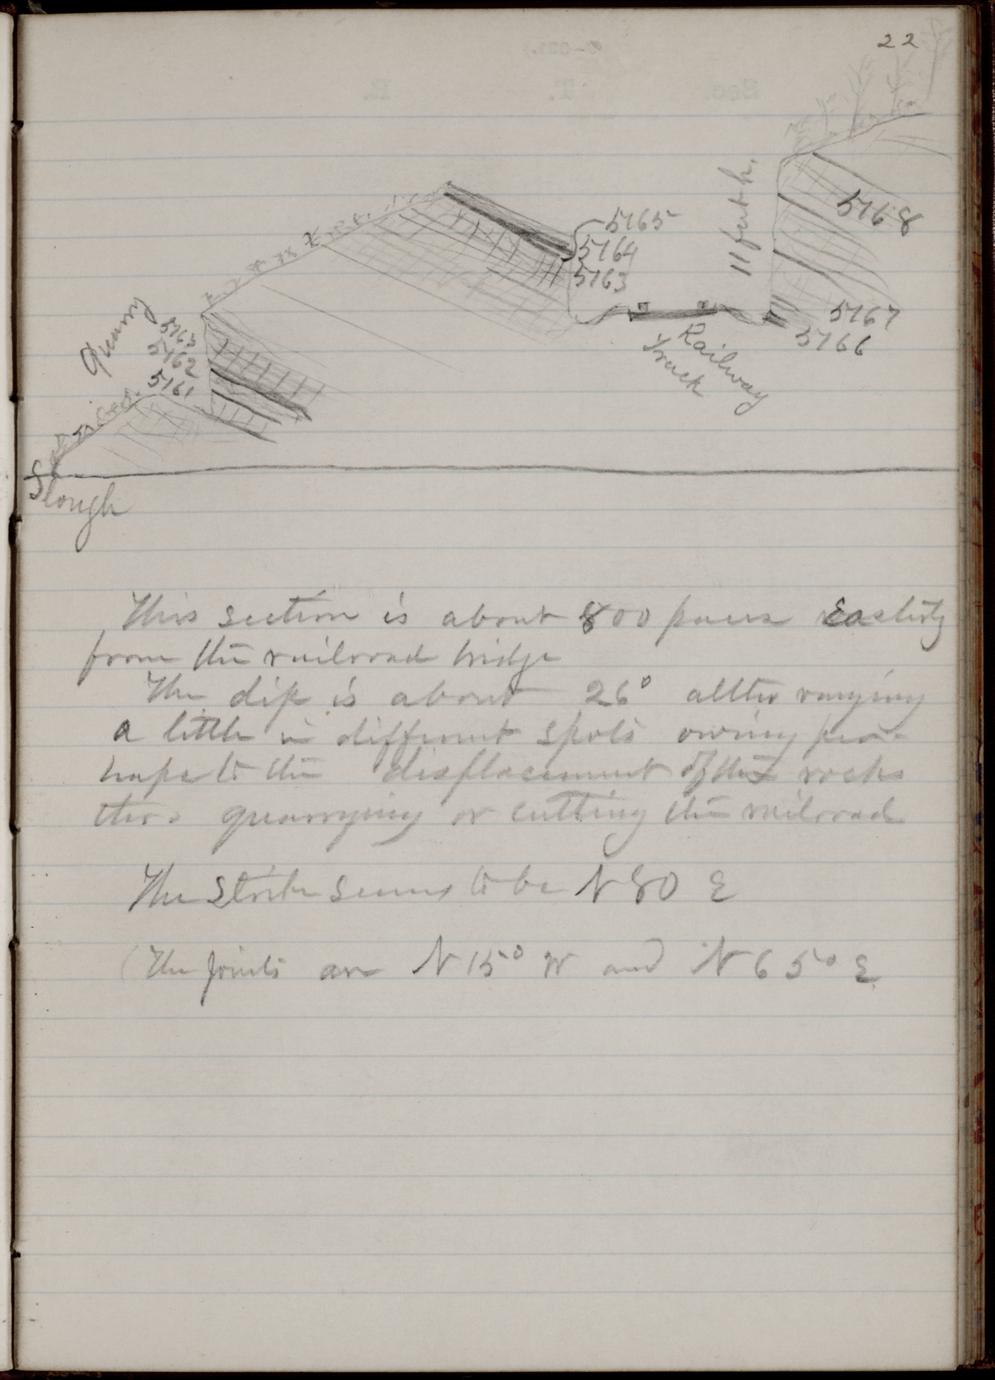 22
5168
11 feet h.
5165
5164
5163
5167
5166
Railway
Track
Quarry
5163
5162
5161
Slough
This section is about 800 paces Easterly
from the railroad bridge
The dip is about 26° altho varying
a little in different spots owing per-
haps to the displacement of the rocks
thro. quarrying or cutting the railroad
The Strike seems to be N 80 E
(The Joints are N 15° W and N 65° E